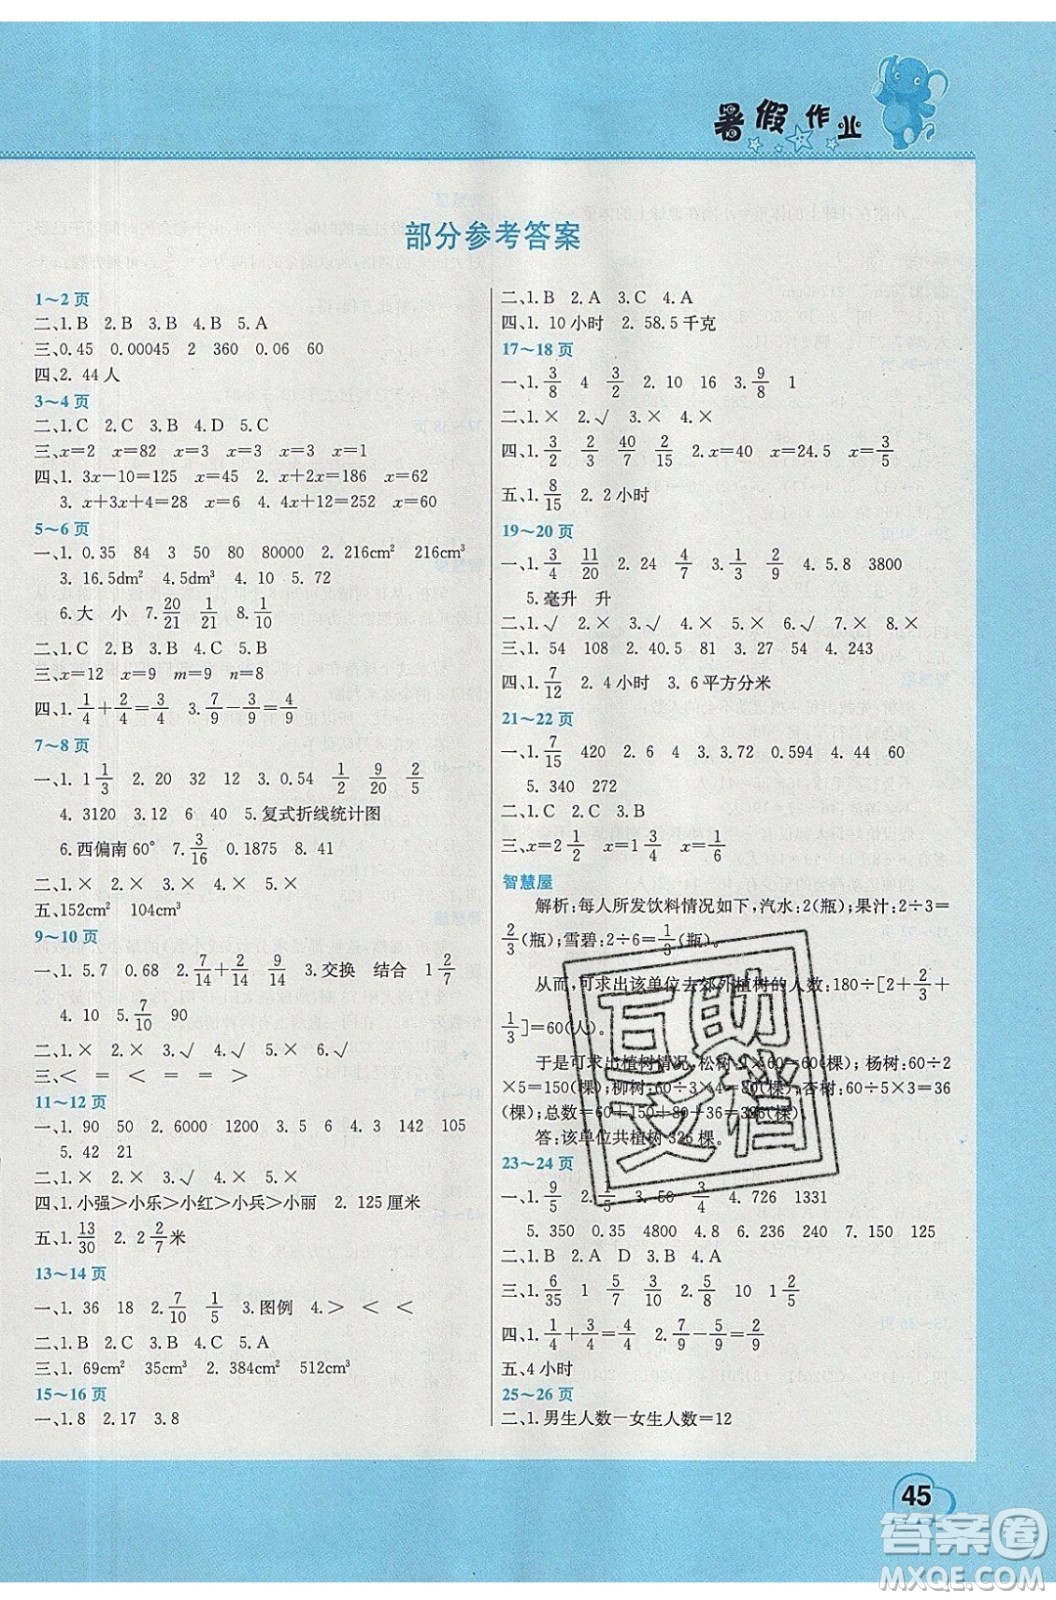 暑假作业
部分参考答案
1～2 页
二、1.B 2.B 3.B 4.B 5.A
三、0.45 0.00045 2 360 0.06 60
四、2. 44 人
3～4 页
二、1.C 2.C 3.B 4.D 5.C
三、x=2 x=82 x=3 x=3 x=3
四、1. 3x-10=125 x=45 2. x+2x=186 x=62
3. x+3x+4=28 x=6 4. 4x+12=252 x=60
5～6 页
一、1. 0.35 84 3 50 80 80000 2. 216cm² 216cm³
3. 16.5dm² 4.5dm³ 4. 10 5. 72
6.大 小 7.20/21 1/21 8.1/10
二、1.B 2.A 3.C 4.C 5.B
三、x=12 x=9 m=9 n=8
四、1.1/4+2/4=3/4 3.7/9-3/9=4/9
7～8 页
一、1. 1 1/3 2. 20 32 12 3. 0.54 1/2 9/20 2/5
4. 3120 3.12 6 40 5.复式折线统计图
6.西偏南 60° 7.3/16 0.1875 8. 41
二、1.× 2.× 3.× 4.√ 5.√
五、152cm² 104cm³
9～10 页
一、1. 5.7 0.68 2.7/14+2/14 9/14 3.交换 结合 1 2/7
4. 10 5.7/10 90
二、1.× 2.× 3.√ 4.√ 5.× 6.√
三、< = < = =
11～12 页
一、1. 90 50 2. 6000 1200 3. 5 4. 142 105
5. 42 21
二、1.× 2.√ 3.× 4.√
四、1.小强＞小乐＞小红＞小兵＞小丽 2. 125 厘米
五、1.13/30 2. 2 2/7 米
13～14 页
一、1. 36 18 2.7/10 1/5 3.图例 4.＞ ＜ ＜
二、1.B 2.C 3.B 4.C 5.A
三、1. 69cm² 45cm³ 2. 384cm² 512cm³
15～16 页
一、1.8 2.17 3.8
二、1.B 2.A 3.C 4.A
四、1. 10 小时 2. 58.5 千克
17～18 页
一、1.3/8 4 3/2 2. 10 16 3.9/8 1
二、1.× 2.√ 3.× 4.×
四、1.3/2 2/3 40/7 2/15 2. x=40 x=24.5 x=3/5
五、1.8/15 2. 2 小时
19～20 页
一、1.3/4 11/20 2.7/24 3.2/3 1/7 4. 5.8 3800
5.毫升 升
二、1.√ 2.× 3.√ 4.× 5.√ 6.√ 7.× 8.×
三、1. 54 108 2. 40.5 81 3. 27 54 4. 243
四、1.7/12 2. 4 小时 3. 6 平方分米
21～22 页
一、1.7/15 420 2. 6 4 3. 3.72 0.594 4. 44 60
5. 340 272
二、1.C 2.C 3.A 4.C
三、x=2 1/2 x=1 3/4 x=1/6
智慧屋
解析:每人所发饮料情况如下,汽水:2(瓶);果汁:2÷3=
2/3(瓶);雪碧:2÷6=1/3(瓶)。
从而,可求出该单位去郊外植树的人数:180÷[2+2/3+
1/3]=60(人)。
于是可求出植树情况,松树:1×60=60(棵);杨树:60÷2
×5=150(棵);柳树:60÷3×4=80(棵);杏树:60÷5×3=36
(棵);总数=60+150+80+36=326(棵)
答:该单位共植树 326 棵。
23～24 页
一、1.9/5 2.1/5 3. 56 3/4 4. 726 1331
5. 350 0.35 4800 4.8 6. 240 7. 150 45
二、1.B 2.A 3.B 4.A
三、1.6/35 1 5/6 3/10 2.5/8 10 4/5
四、1.1/4+3/4=4/4 2.7/9-2/9=5/9
五、4 小时
25～26 页
二、1.男生人数－女生人数=12
45
互助文档
答案圈
MXQE.COM